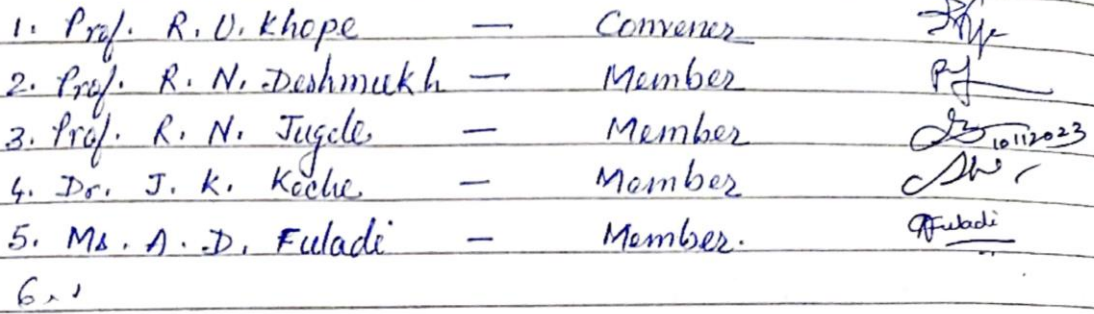 1. Prof. R. U. Khope — Convener
2. Prof. R. N. Deshmukh — Member
3. Prof. R. N. Jugele — Member 10112023
4. Dr. J. K. Koche — Member
5. Ms. A. D. Fuladi — Member. Fuladi
6.